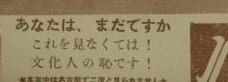 あなたは、まだですか
これを見なくては！
文化人の恥です！